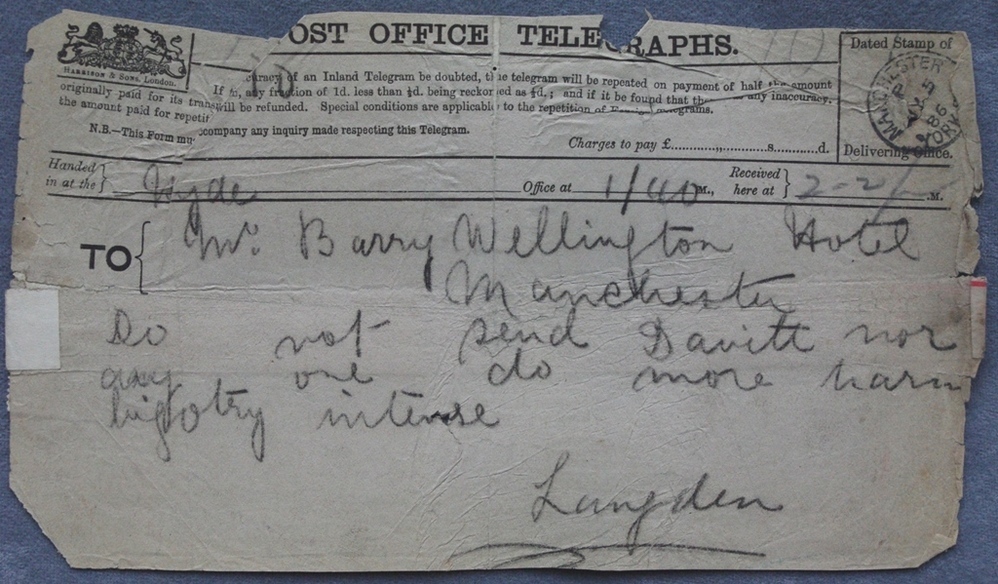 OST OFFICE TELEGRAPHS.
HARRISON & SONS, London.
curacy of an Inland Telegram be doubted, the telegram will be repeated on payment of half the amount
originally paid for its trans
If to, any fraction of 1d. less than ½d. being reckoned as ½d.; and if it be found that the any inaccuracy.
the amount paid for repetit will be refunded. Special conditions are applicable to the repetition of Foreign Telegrams.
N.B.—This Form mu ccompany any inquiry made respecting this Telegram.
Charges to pay £ s. d.
Dated Stamp of
MANCHESTER
86
Delivering Office.
Handed in at the Hyde Office at 1/40 M., Received here at 2-2 .M.
TO Mr. Barry Wellington Hotel
Manchester
Do not send Davitt nor
any one do more harm
bigotry intense
Langden